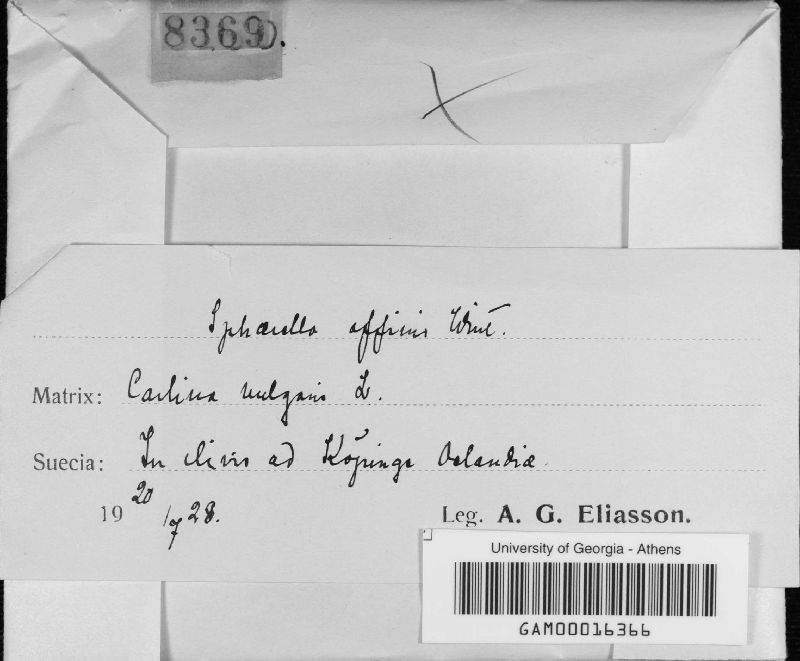 8369D.
Sphaerella affinis Wint.
Matrix: Carlina vulgaris L.
Suecia: In clivis ad Köpinge Oelandiæ.
19 20/7 28.
Leg. A. G. Eliasson.
University of Georgia - Athens
GAM00016366